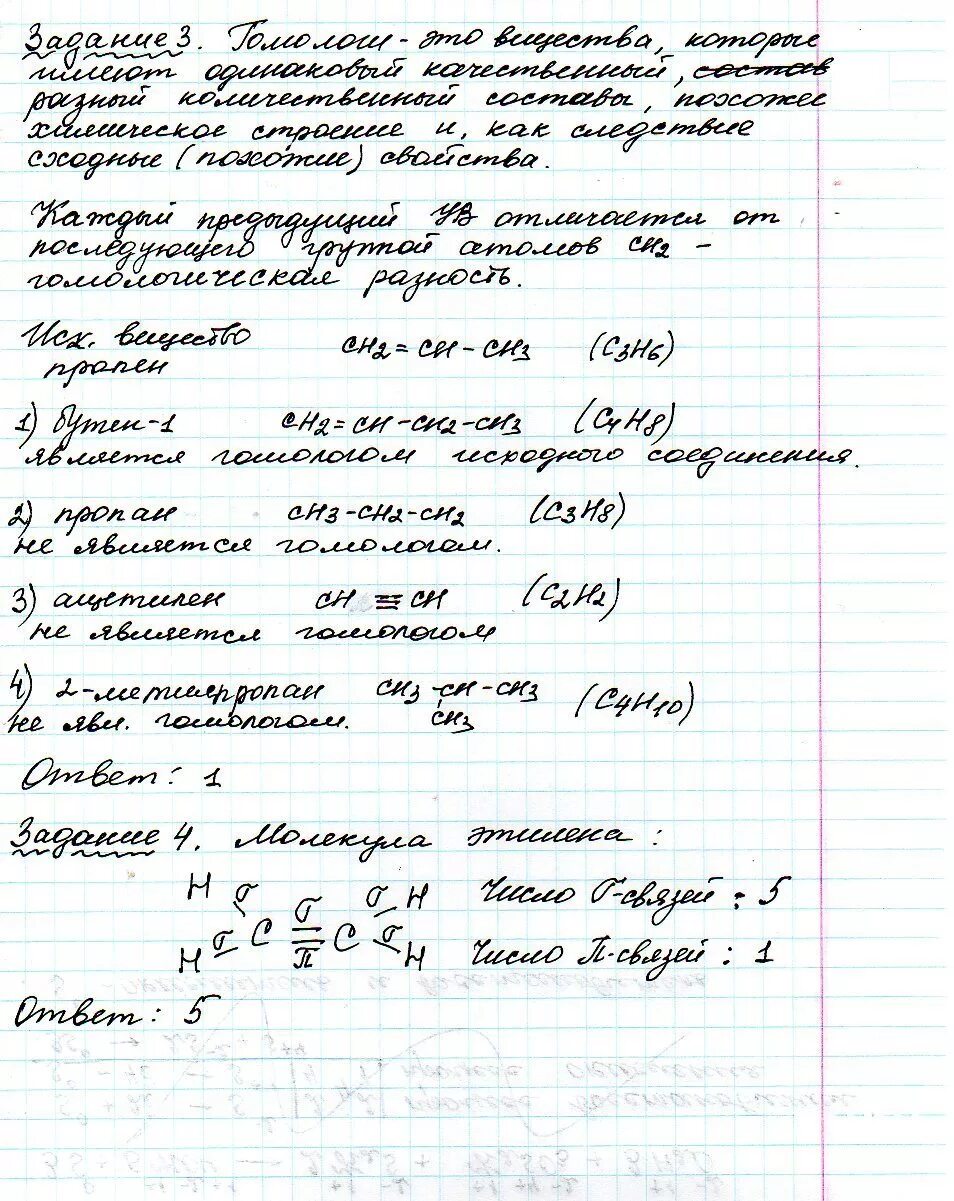 Задание 3. Гомологи - это вещества, которые
имеют одинаковый качественный, состав
разный количественный составы, похожее
химическое строение и, как следствие
сходные (похожие) свойства.
Каждый предыдущий УВ отличается от
последующего группой атомов CH2 -
гомологическая разность.
Исх. вещество CH2 = CH - CH3 (C3H6)
пропен
1) бутен-1 CH2 = CH - CH2 - CH3 (C4H8)
является гомологом исходного соединения.
2) пропан CH3 - CH2 - CH2 (C3H8)
не является гомологом.
3) ацетилен CH ≡ CH (C2H2)
не является гомологом
4) 2-метилпропан CH3 - CH - CH3 (C4H10)
не явл. гомологом. CH3
Ответ: 1
Задание 4. Молекула этилена:
H σ σ σ H Число σ-связей: 5
H σ C = C σ H Число П-связей: 1
П
Ответ: 5